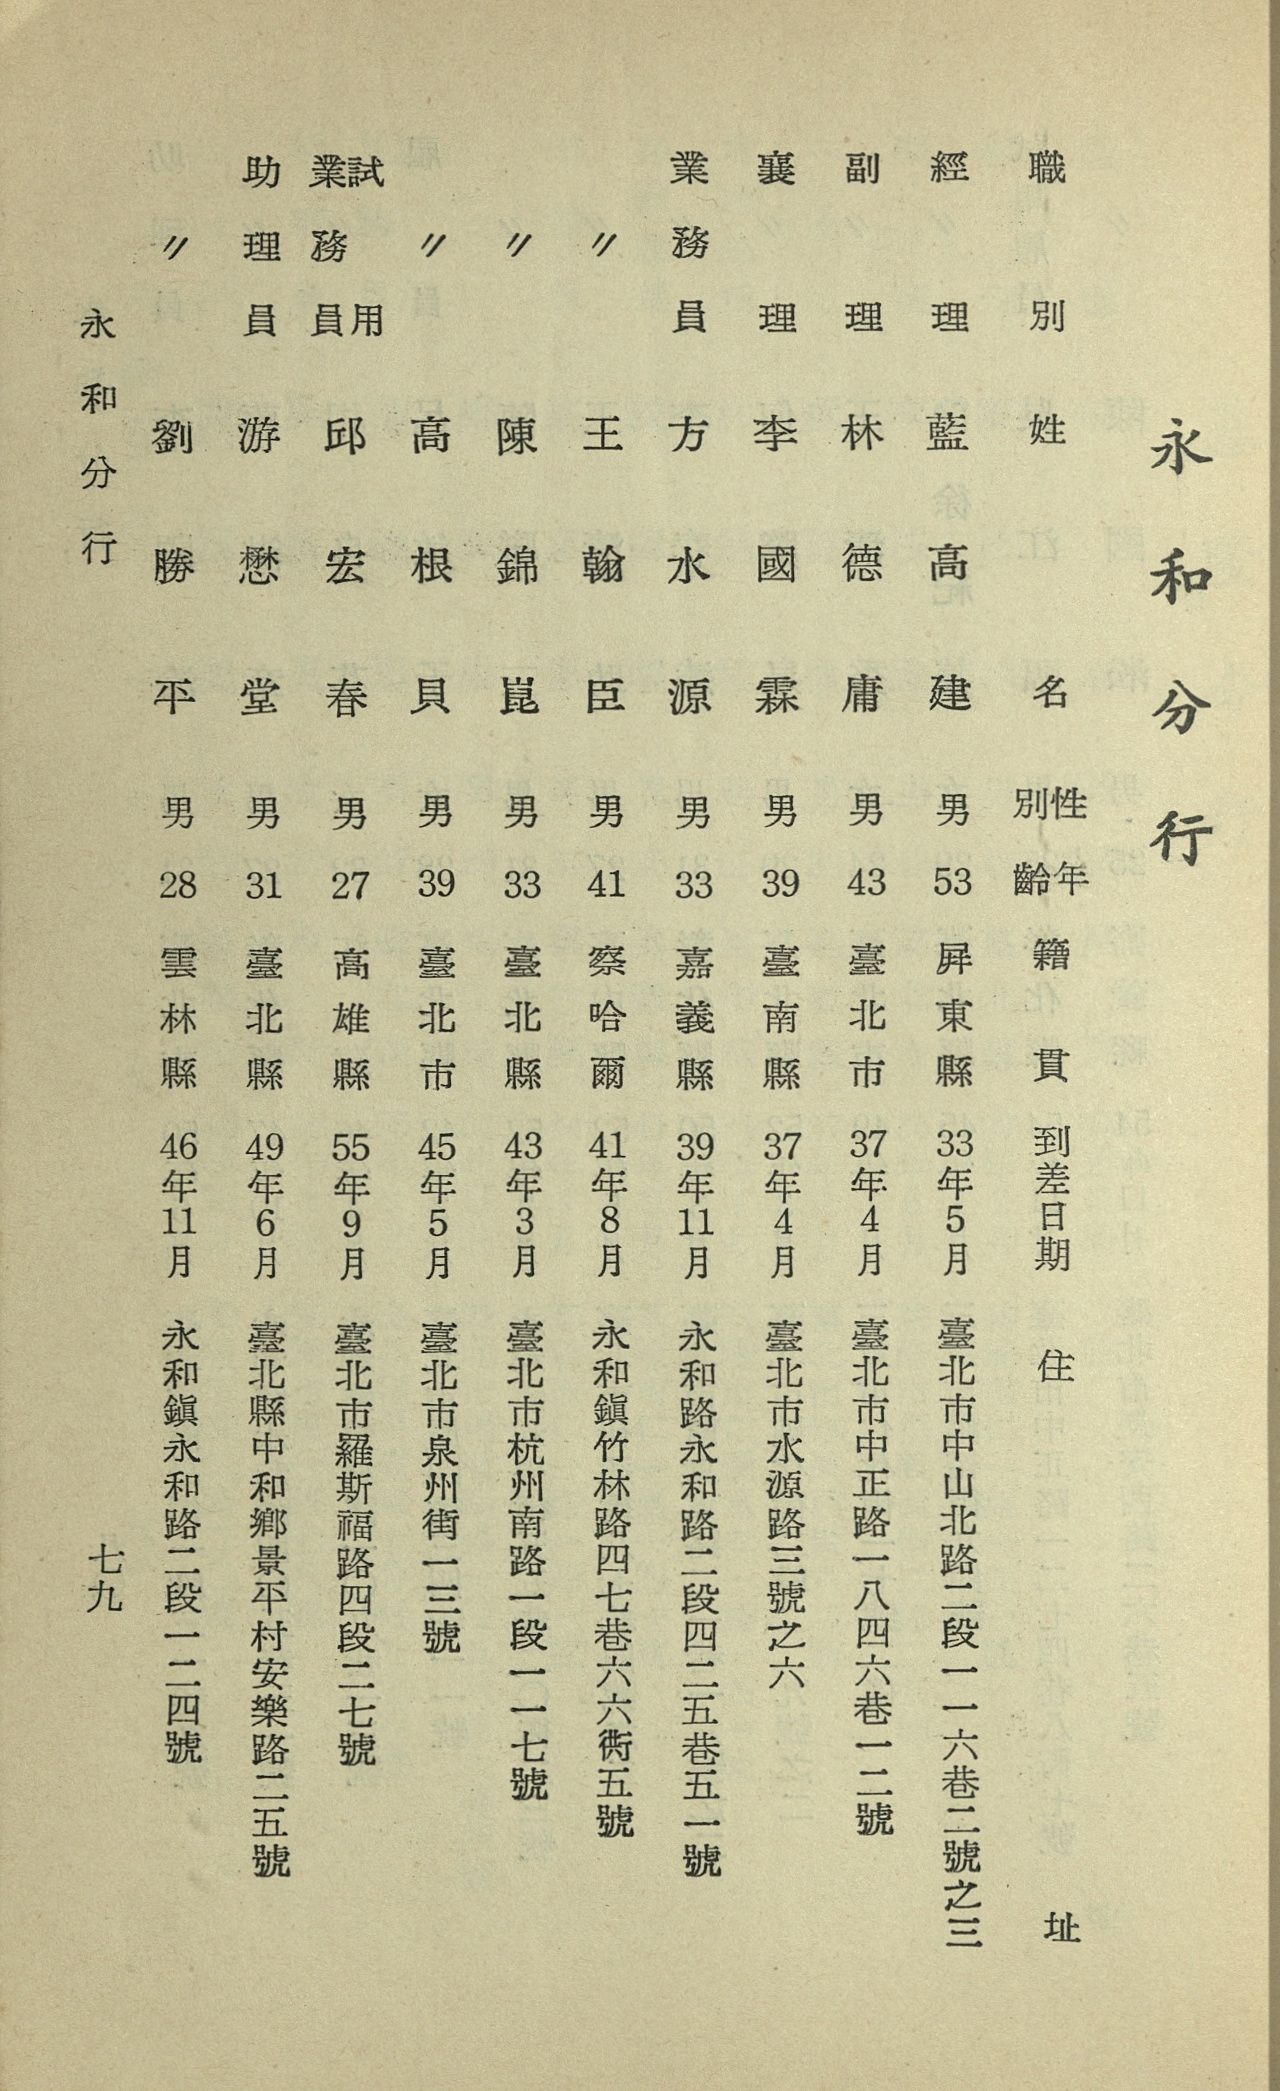 永和分行
職別 姓名 性別 年齡 籍貫 到差日期 住址
經理 藍高建 男 53 屏東縣 33年5月 臺北市中山北路二段一一六巷二號之三
副理 林德庸 男 43 臺北市 37年4月 臺北市中正路一八四六巷一二號
襄理 李國霖 男 39 臺南縣 37年4月 臺北市水源路三號之六
業務員 方水源 男 33 嘉義縣 39年11月 永和路永和路二段四二五巷五一號
〃 王翰臣 男 41 察哈爾 41年8月 永和鎭竹林路四七巷六六衖五號
〃 陳錦崑 男 33 臺北縣 43年3月 臺北市杭州南路一段一一七號
〃 高根貝 男 39 臺北市 45年5月 臺北市泉州街一三號
試用業務員 邱宏春 男 27 高雄縣 55年9月 臺北市羅斯福路四段二七號
助理員 游懋堂 男 31 臺北縣 49年6月 臺北縣中和鄉景平村安樂路二五號
〃 劉勝平 男 28 雲林縣 46年11月 永和鎭永和路二段一二四號
永和分行 七九